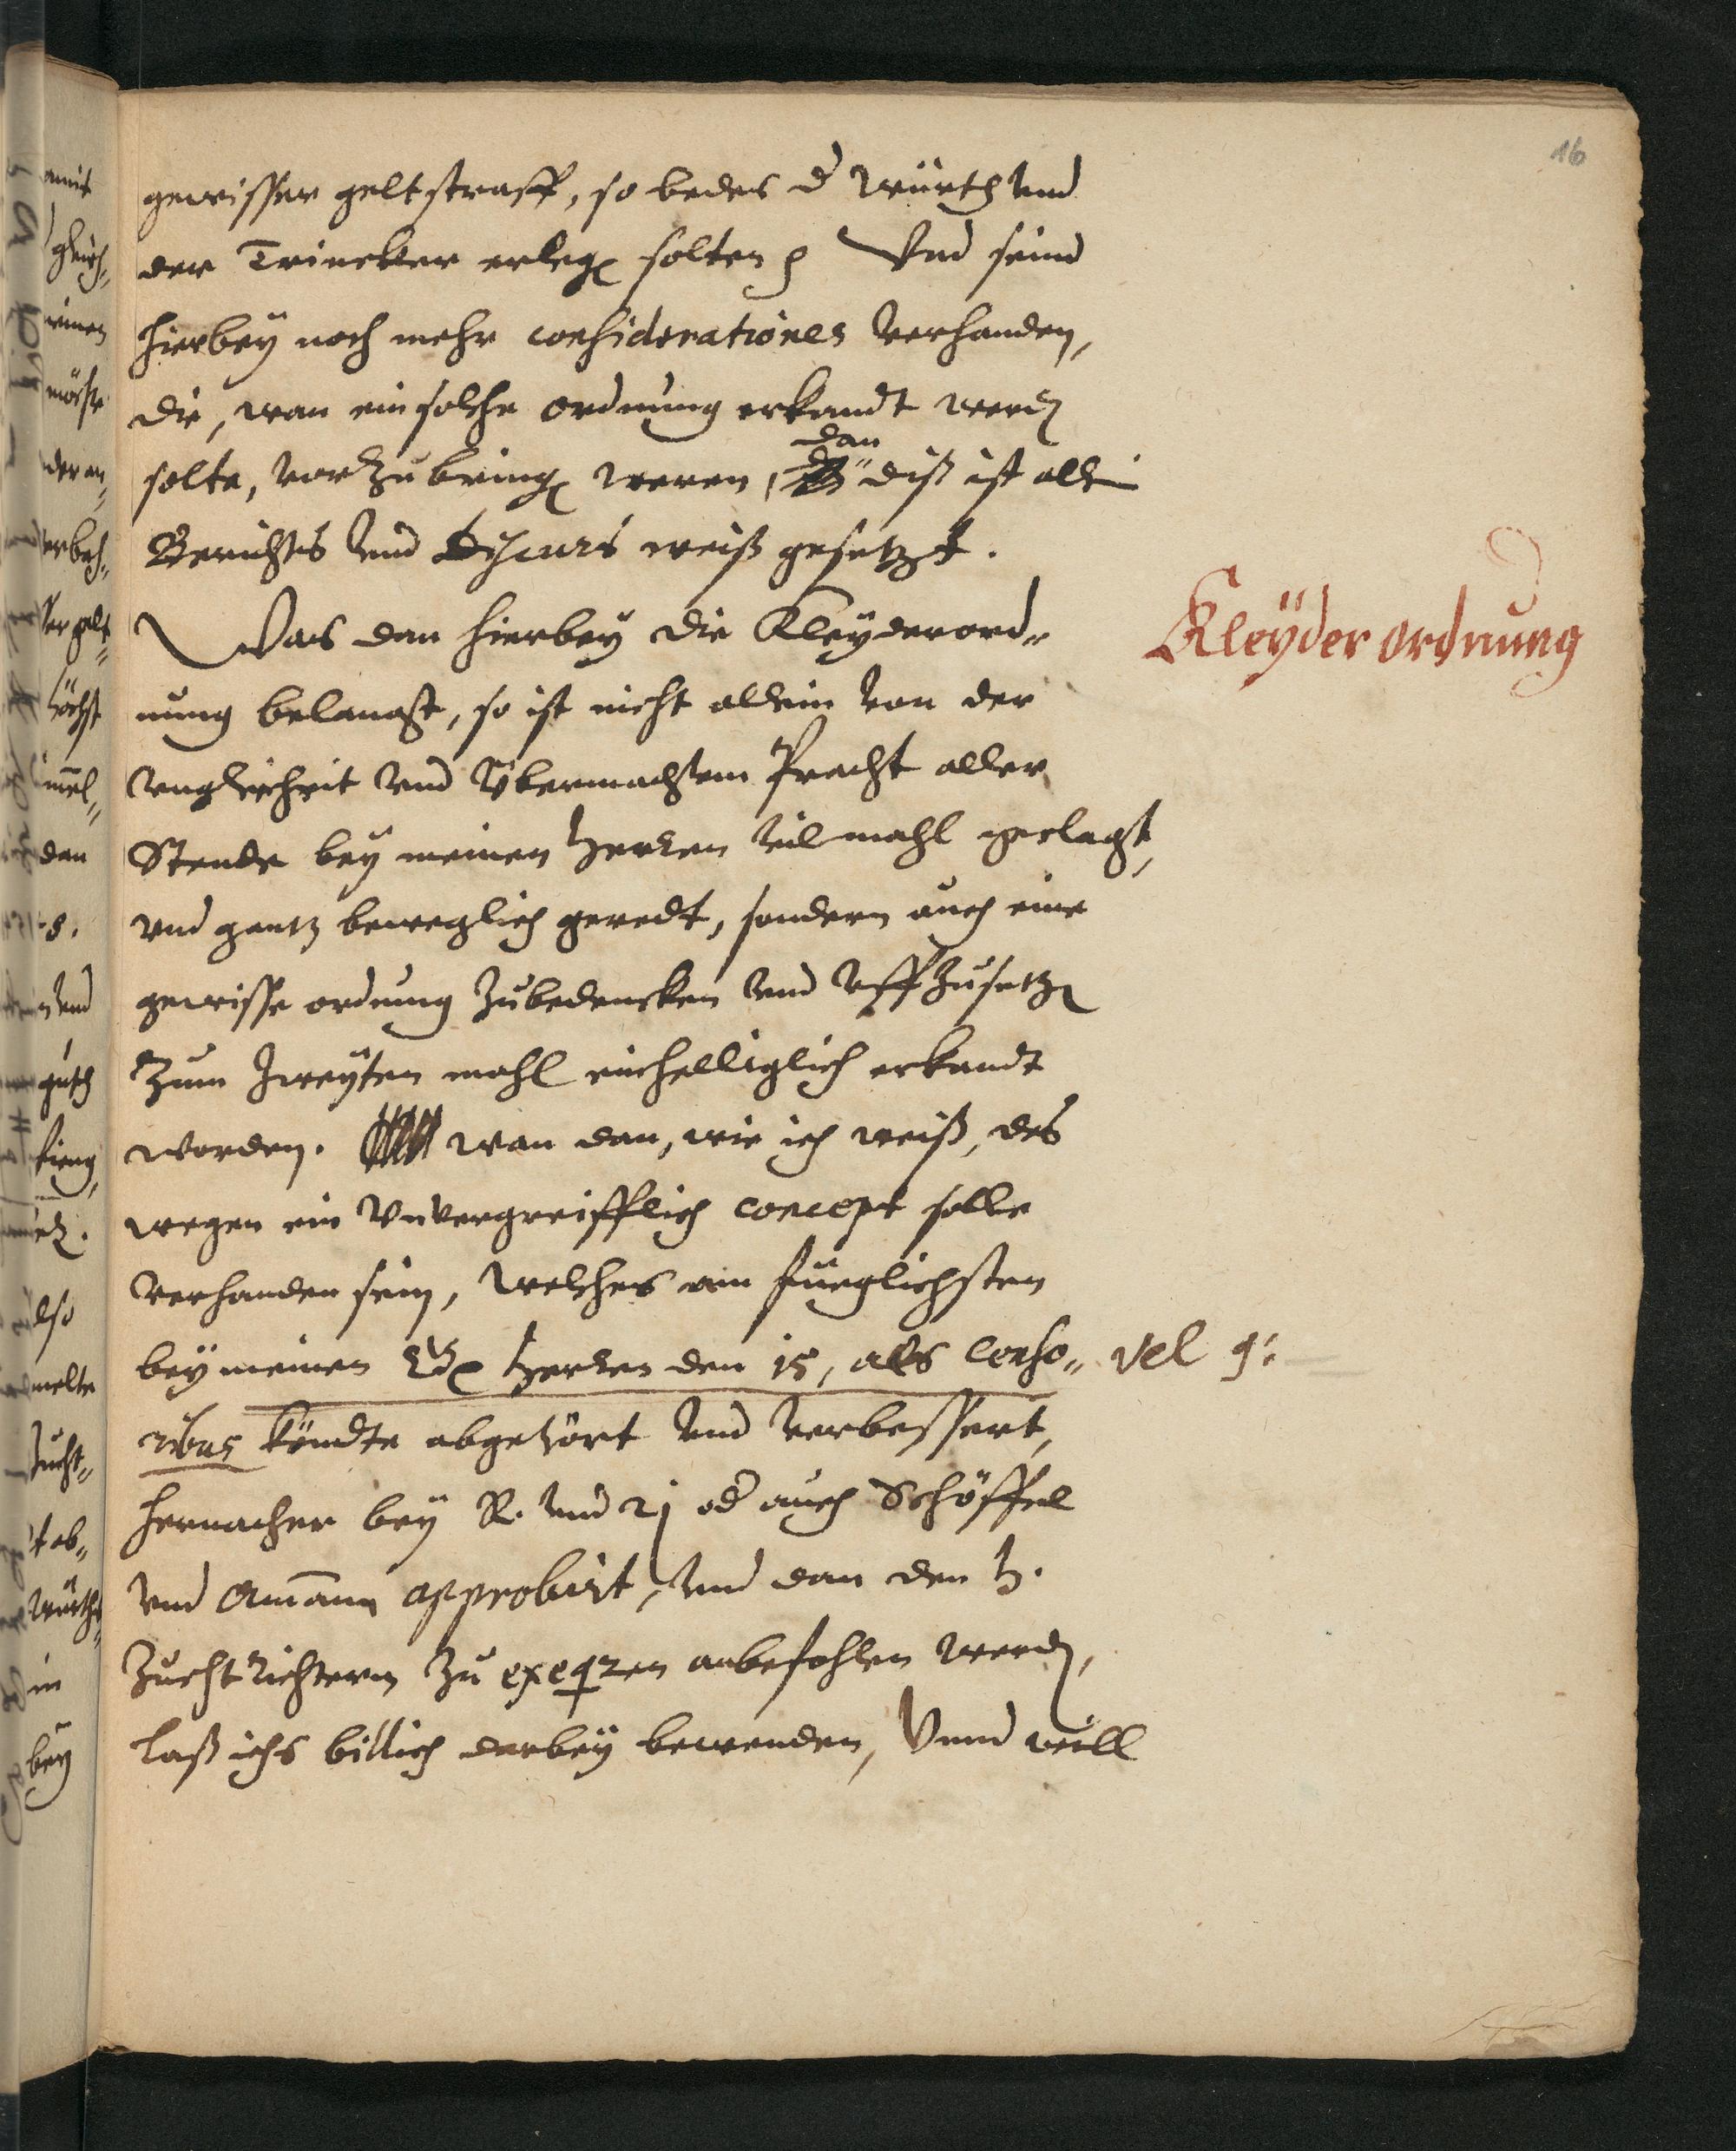 16
gewisser geltstraff, so beder d würth und
der Trincker erleg solten Und seind
hierbey noch mehr considerationes verhanden,
die, wan ein solche ordnung erkandt werd
solte, vorzubring weren, dan diß ist allein
Berichts und discurs weiß gesetzt.
Was dan hierbey die Kleyderord„
Kleÿder ordnung
nung belangt, so ist nicht allein von der
ungleicheit und Ubermachtem Pracht aller
Stende bey meinen herren vil mahl geclagt,
und gantz beweglich geredt, sondern auch eine
gewisse ordnung zubedencken und uffzusetz
zum zweyten mahl einhelliglich erkandt
worden. wan dan, wie ich weiß, des
wegen ein Unvergreifflich concept solle
verhanden sein, welches am füeglichsten
bey meinen herren den 15, als Censo„ vel 9.
ribus köndte abgehört und verbessert,
hernacher bey R. und 21 od auch Schöffel
und Amann approbirt, und dan den h.
Zuchtrichtern zu exeqren anbefohlen werd,
laß ichs billich darbey bewenden, Unnd will